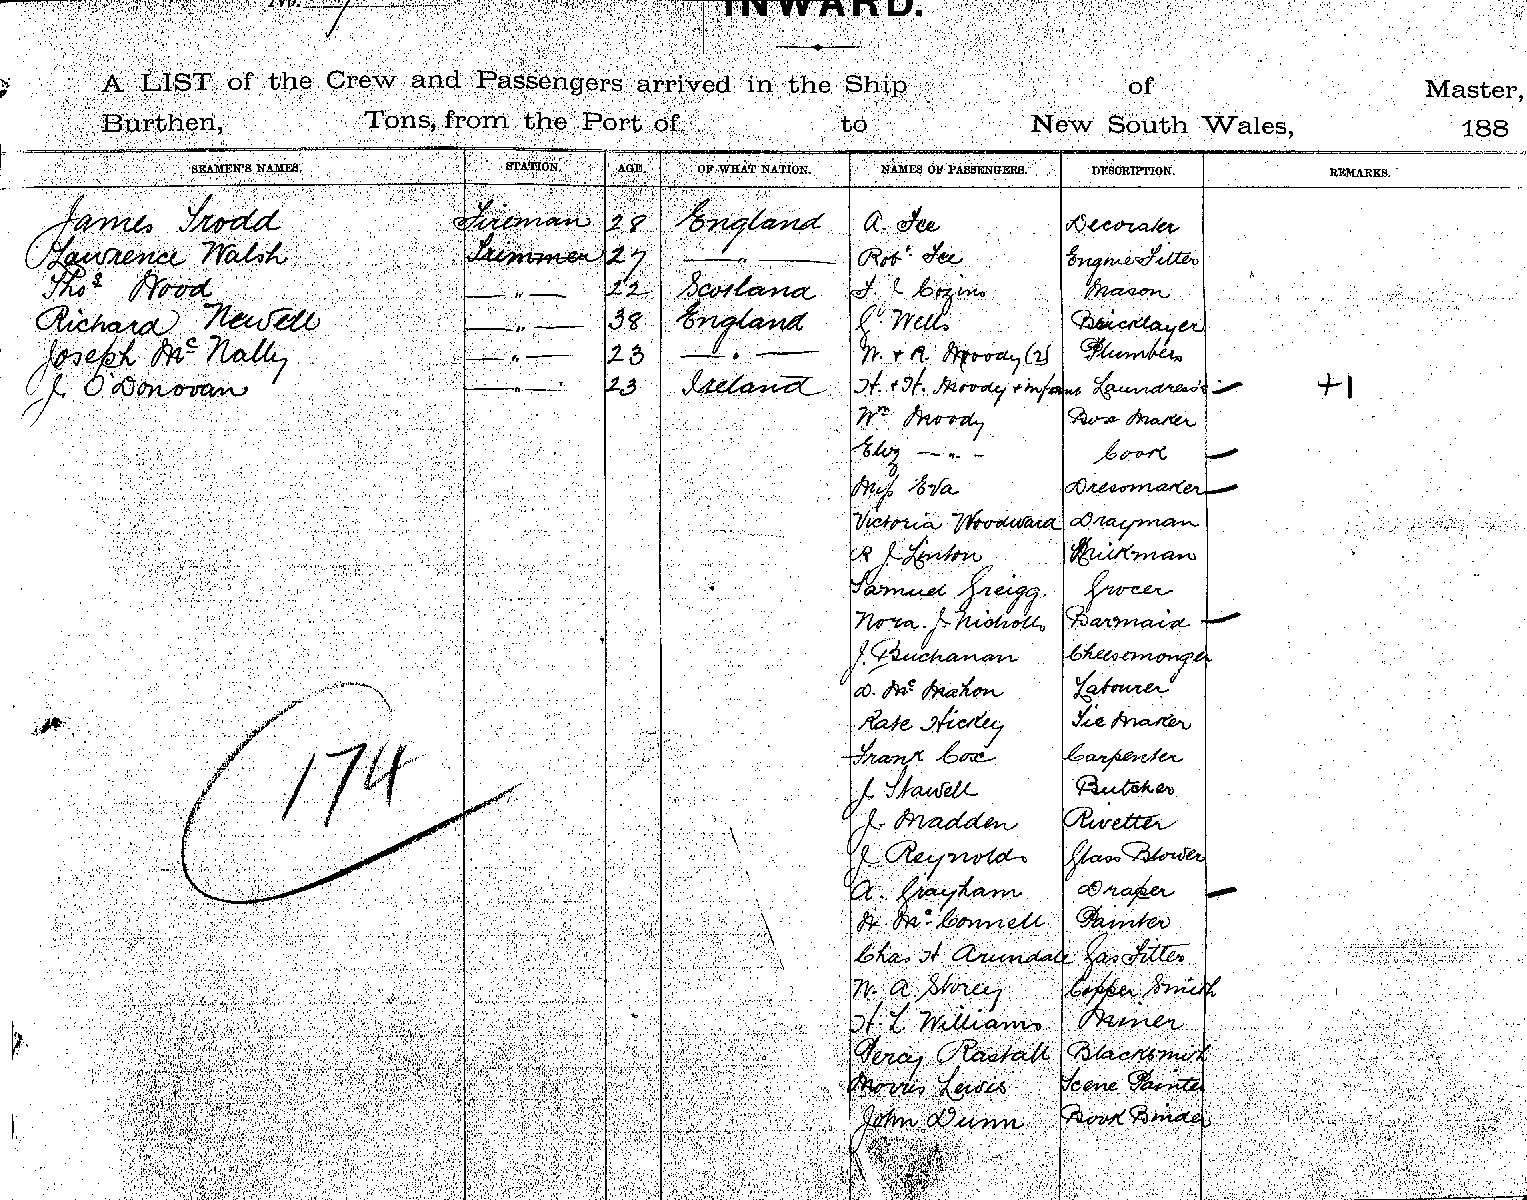 No. 7
INWARD.
A LIST of the Crew and Passengers arrived in the Ship of Master,
Burthen, Tons, from the Port of to New South Wales, 188
SEAMEN'S NAMES. STATION. AGE. OF WHAT NATION. NAMES OF PASSENGERS. DESCRIPTION. REMARKS.
James Trodd Fireman 28 England A. Fee Decorater
Lawrence Walsh Trimmer 27 — " — Robt Fee Engine Fitter
Thos Wood — " — 22 Scotland F. J Cozins Mason
Richard Newell — " — 38 England J. Wells Bricklayer
Joseph Mc Nally — " — 23 — " — W. & R. Moody (2) Plumbers
J. O'Donovan — " — 23 Ireland H. & H. Moody & infant Laundress's — +1
Wm Moody Box Maker
Eliz — " — Cook —
Miss Eva Dressmaker —
Victoria Woodward Drayman
R J Linton Milkman
Samuel Greigg. Grocer
Nora J Nicholls Barmaid —
J. Buchanan Cheesemonger
D. Mc Mahon Labourer
Kate Hickey Tie Maker
Frank Cox Carpenter
J. Stawell Butcher
J. Madden Rivetter
J Reynolds Glass Blower
A. Grayham Draper —
H. Mc Connell Painter
Chas H Arundale Gas Fitter
W. A Storey Copper Smith
H. L Williams Miner
Percy Rastall Blacksmith
Morris Lewis Scene Painter
John Dunn Book Binder
174